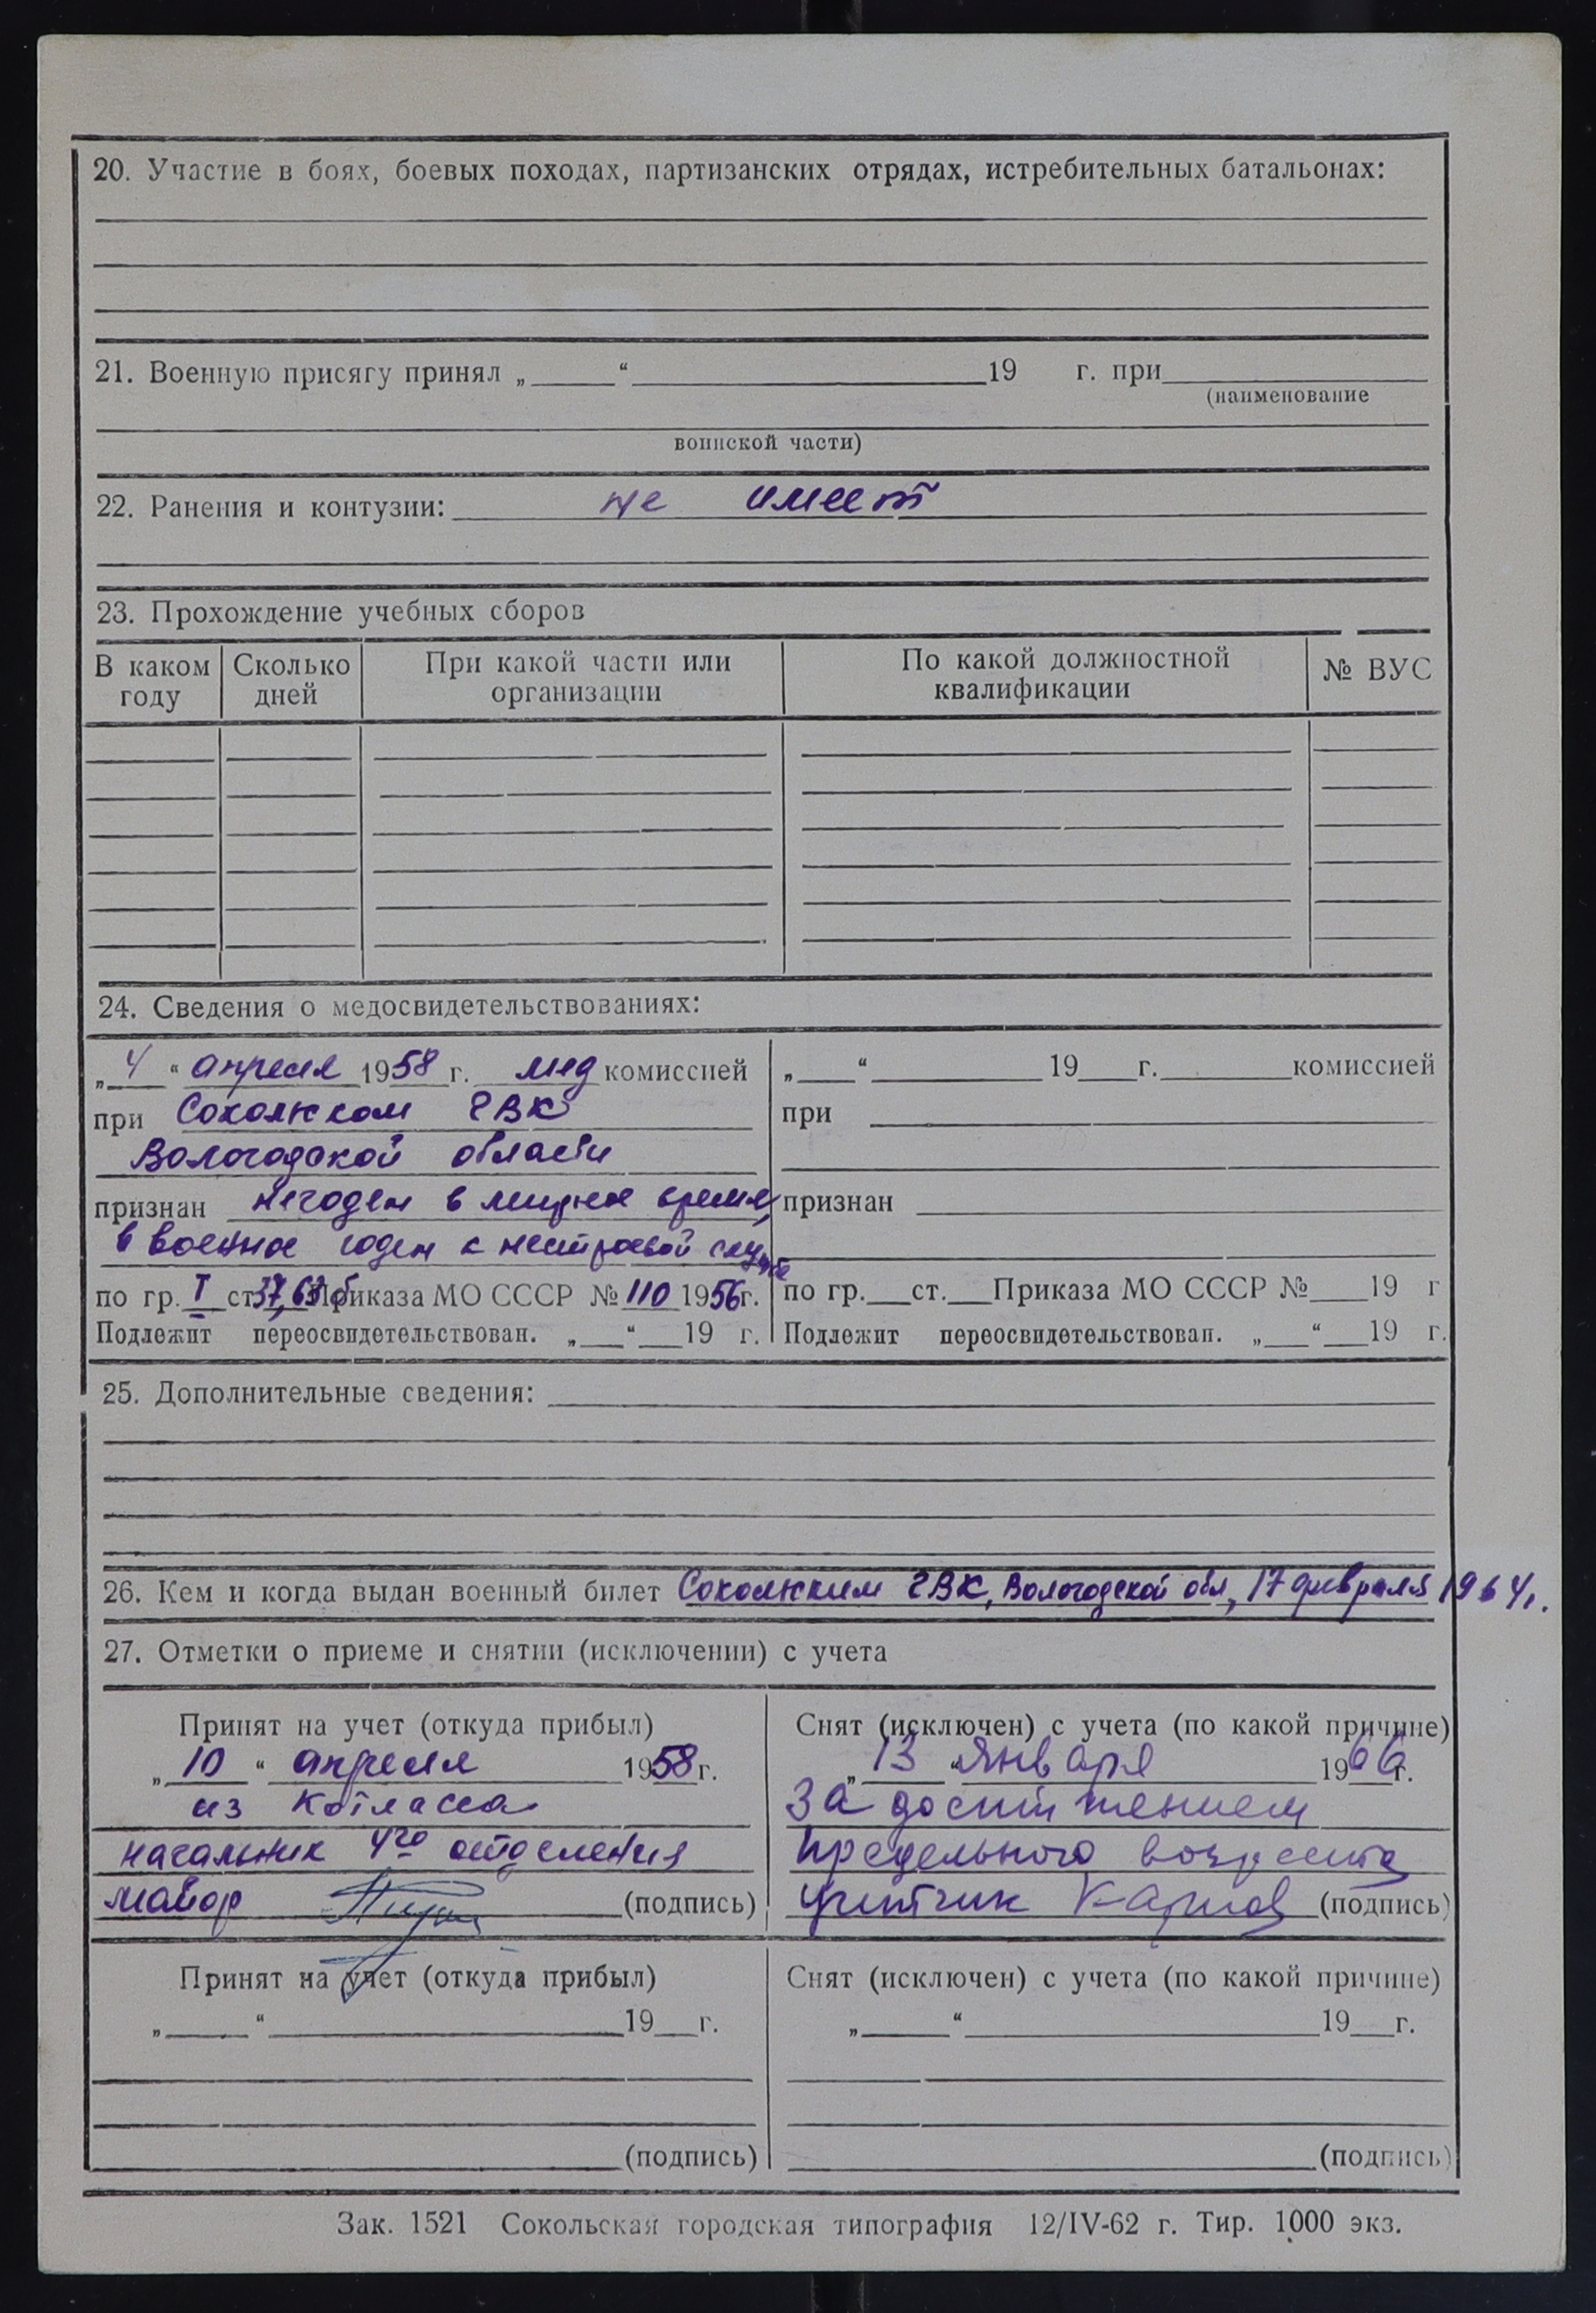 20. Участие в боях, боевых походах, партизанских отрядах, истребительных батальонах:
21. Военную присягу принял „ “ 19 г. при
(наименование
воинской части)
22. Ранения и контузии: не имеет
23. Прохождение учебных сборов
В каком году Сколько дней При какой части или организации По какой должностной квалификации № ВУС
24. Сведения о медосвидетельствованиях:
„4“ апреля 1958 г. мед комиссией
при Сокольском ГВК
Вологодской области
признан негоден в мирное время,
в военное годен к нестроевой службе
по гр. I ст. 37, 63 б Приказа МО СССР № 110 1956 г.
Подлежит переосвидетельствован. „ “ 19 г.
„ “ 19 г. комиссией
при
признан
по гр. ст. Приказа МО СССР № 19 г
Подлежит переосвидетельствован. „ “ 19 г.
25. Дополнительные сведения:
26. Кем и когда выдан военный билет Сокольским ГВК, Вологодской обл, 17 февраля 1964г.
27. Отметки о приеме и снятии (исключении) с учета
Принят на учет (откуда прибыл)
„10“ апреля 1958 г.
из Котласа
начальник 4го отделения
майор (подпись)
Снят (исключен) с учета (по какой причине)
„13“ Января 1966 г.
За достижением
предельного возраста
учетчик (подпись)
Принят на учет (откуда прибыл)
„ “ 19 г.
(подпись)
Снят (исключен) с учета (по какой причине)
„ “ 19 г.
(подпись)
Зак. 1521 Сокольская городская типография 12/IV-62 г. Тир. 1000 экз.